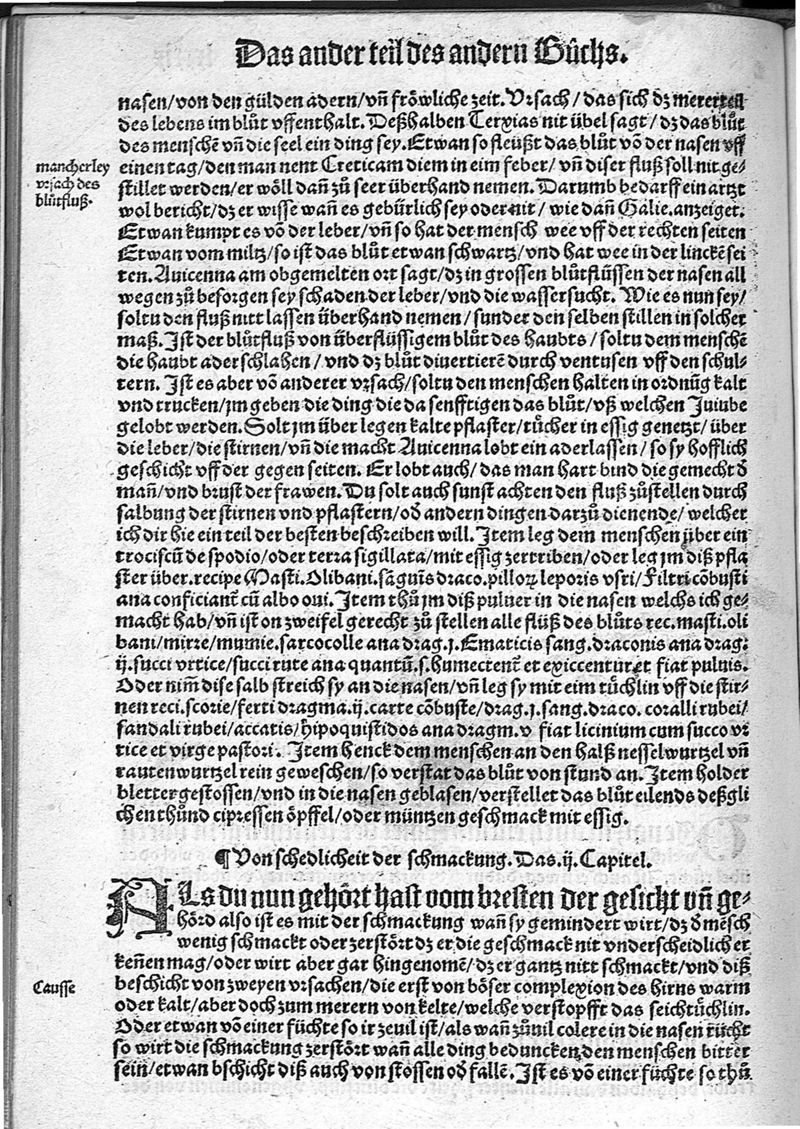 Das ander teil des andern Bůchs.
nasen/von den gülden adern/vñ frōwliche zeit. Vrsach/das sich dz merer teil
des lebens im blůt vffenthalt. Deßhalben Terxias nit übel sagt/dz das blůt
des menschē vñ die seel ein ding sey. Etwan so fleüßt das blůt vō der nasen vff
mancherley
vrsach des
blůtfluß.
einen tag/den man nent Creticam diem in eim feber/vñ diser fluß soll nit ge-
stillet werden/er wöll dañ zů seer überhand nemen. Darumb bedarff ein artzt
wol bericht/dz er wisse wañ es gebürlich sey oder nit/wie dañ Galie. anzeiget.
Etwan kumpt es vō der leber/vñ so hat der mensch wee vff der rechten seiten
Etwan vom miltz/so ist das blůt etwan schwartz/vnd hat wee in der linckē sei
ten. Auicenna am obgemelten ort sagt/dz in grossen blůtflüssen der nasen all
wegen zů besorgen sey schaden der leber/vnd die wassersucht. Wie es nun sey/
soltu den fluß nitt lassen überhand nemen/sunder den selben stillen in solcher
maß. Ist der blůtfluß von überflüssigem blůt des haubts/soltu dem menschē
die haubt ader schlahen/vnd dz blůt diuertierē durch ventusen vff den schul-
tern. Ist es aber vō anderer vrsach/soltu den menschen halten in ordnūg kalt
vnd trucken/jm geben die ding die da senfftigen das blůt/vß welchen Juiube
gelobt werden. Solt jm über legen kalte pflaster/tücher in essig genetzt/über
die leber/die stirnen/vñ die macht Auicenna lobt ein aderlassen/so sy hofflich
geschicht vff der gegen seiten. Er lobt auch/das man hart bind die gemecht d̄
mañ/vnd brust der frawen. Du solt auch sunst achten den fluß zůstellen durch
salbung der stirnen vnd pflastern/od̄ andern dingen darzů dienende/welcher
ich dir hie ein teil der besten beschreiben will. Item leg dem menschen über ein
trociscū de spodio/oder terra sigillata/mit essig zertriben/oder leg jm diß pfla
ster über. recipe Masti. Olibani. sāguīs draco. pilloꝝ leporis vsti/Filtri cōbusti
ana conficiant̄ cū albo oui. Item thů jm diß puluer in die nasen welchs ich ge-
macht hab/vñ ist on zweifel gerecht zů stellen alle flüß des blůts rec. masti. oli
bani/mirre/mumie. sarcocolle ana drag.j. Ematicis sang. draconis ana drag.
ij. succi vrtice/succi rute ana quantū.s. humectent̄ et exiccentur et fiat puluis.
Oder nim̄ dise salb streich sy an die nasen/vñ leg sy mit eim tüchlin vff die stir-
nen reci. scorie/ferri dragma.ij. carte cōbuste/drag.j. sang. draco. coralli rubei/
sandali rubei/accatis/hipoquistidos ana dragm.v fiat licinium cum succo vr
tice et virge pastori. Item henck dem menschen an den halß nesselwurtzel vñ
rautenwurtzel rein geweschen/so verstat das blůt von stund an. Item holder
bletter gestossen/vnd in die nasen geblasen/verstellet das blůt eilends deßgli
chen thůnd cipressen öpffel/oder müntzen geschmack mit essig.
¶ Von schedlicheit der schmackung. Das.ij. Capitel.
ALs du nun gehört hast vom bresten der gesicht vñ ge-
hörd also ist es mit der schmackung wañ sy gemindert wirt/dz d̄ mēsch
wenig schmackt oder zerstört dz er die geschmack nit vnderscheidlich er
keñen mag/oder wirt aber gar hingenomē/dz er gantz nitt schmackt/vnd diß
Causse
beschicht von zweyen vrsachen/die erst von böser complexion des hirns warm
oder kalt/aber doch zum merern von kelte/welche verstopfft das seichtüchlin.
Oder etwan vō einer füchte so ir zeuil ist/als wañ zůuil colere in die nasen rücht
so wirt die schmackung zerstört wañ alle ding beduncken den menschen bitter
sein/etwan bschicht diß auch von stossen od̄ fallē. Ist es vō einer füchte so thů